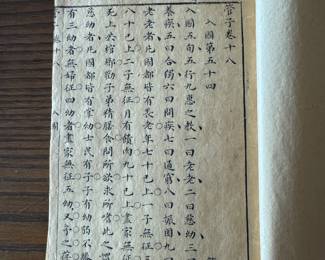 管子卷十八
入國第五十四
入國四旬五行九惠之教一曰老老二曰慈幼三曰
養疾五曰合獨六曰問疾七曰通窮八曰振困九曰
老老者凡國都皆有掌老年七十已上一子無征三
八十已上二子無征月有饋肉九十已上盡家無征
死上共棺槨勸子弟精膳食問所欲求所嗜此之謂
慈幼者凡國都皆有掌幼士民有子子有幼弱不勝
有三幼者無婦征四幼者盡家無征五幼又予之葆
卷十八 入國